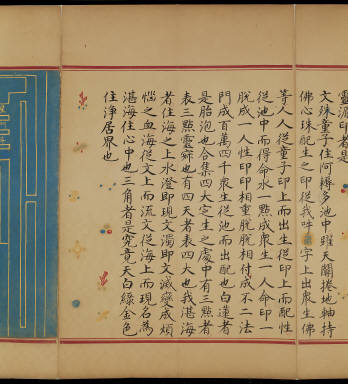 靈源印者是
文殊童子住阿耨多池中躍天關捲地軸持
佛心珠配生之印從我味字上出衆生佛
等人人從童子印上而出生從印上而配性
從池中而得命水一點成衆生一人命印一
脫成一人性印印相重脫脫相付成不二法
門成百萬四千衆生從池而出配也白蓮者
是胎泡也合集四大完生之處中有三點者
表三點靈穌也有四天者表四大也我湛海
者住海之上水澄即現文濁即文滅癡成煩
惱之血海從文上而流文從海上而現名為
湛海住心中也三角者是究竟天白綠金色
住淨居界也